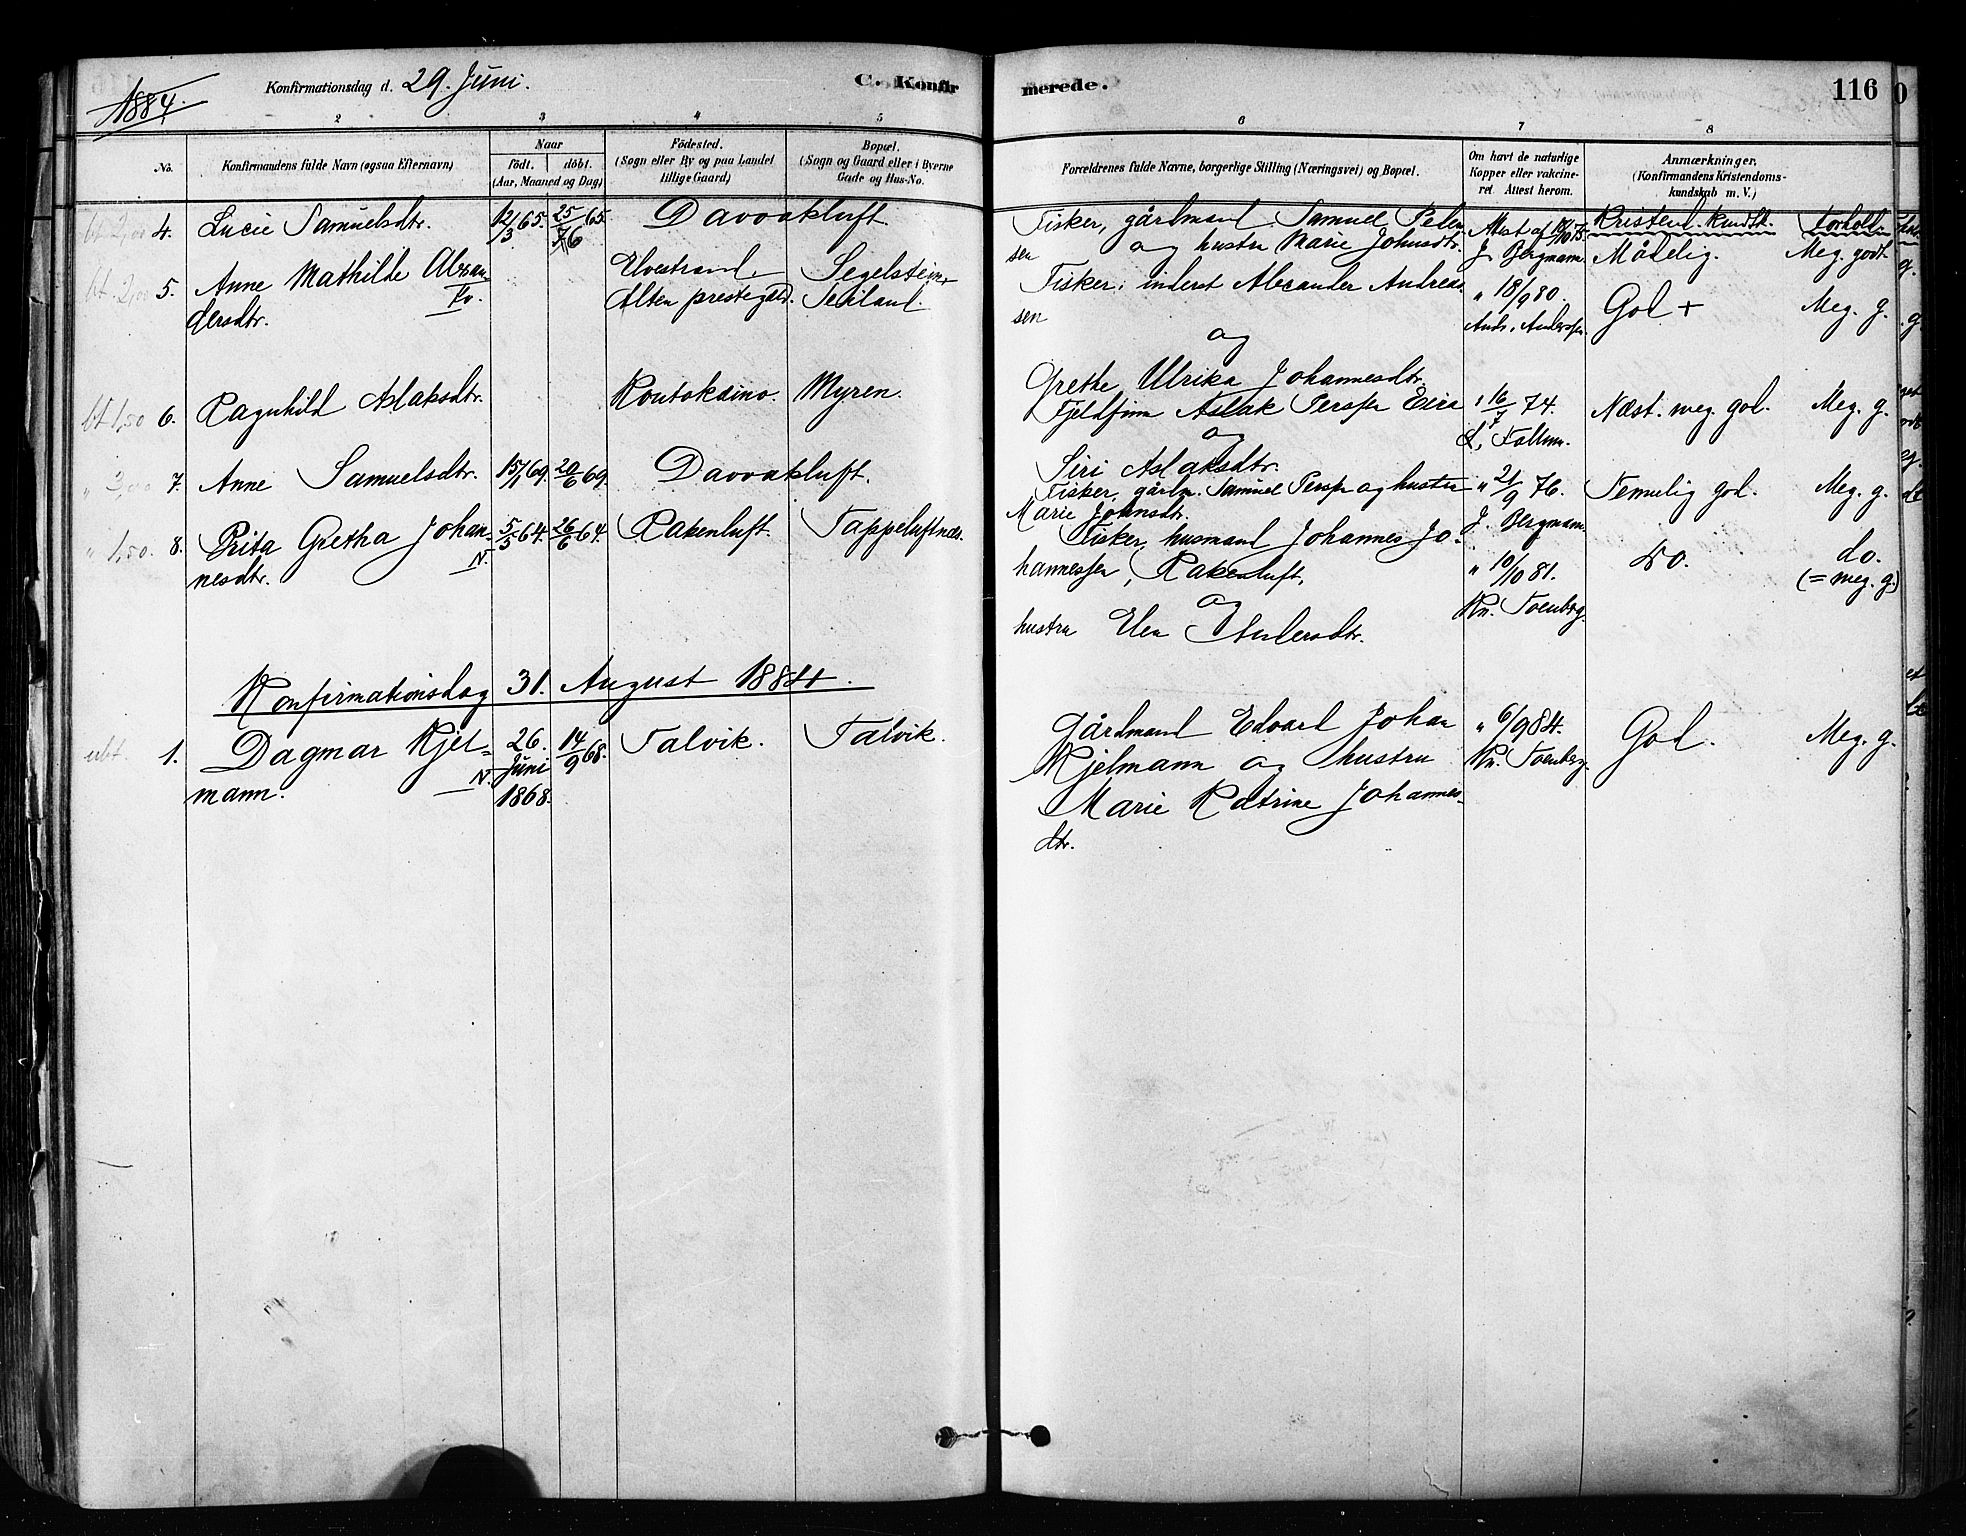 1884.
Konfirmationsdag d. 29. Juni.
C. Konfirmerede.
116
2 3 4 5 6 7 8
No.
Konfirmandens fulde Navn (ogsaa Efternavn)
Naar
födt. döbt.
(Aar, Maaned og Dag)
Födested.
(Sogn eller By og paa Landet
tillige Gaard)
Bopæl.
(Sogn og Gaard eller i Byerne
Gade og Hus-No.
Forældrenes fulde Navne, borgerlige Stilling (Næringsvei) og Bopæl.
Om havt de naturlige
Kopper eller vakcine-
ret. Attest herom.
Anmærkninger.
(Konfirmandens Kristendoms-
kundskab m. V.)
Kristend. kundsk. Forhold
bt 2,00 4. Lucie Samuelsdtr. 12/3 65. 25/6 65. Davvakluft
Fisker, gårdmand Samuel Peder
sen og hustru Marie Johnsdtr.
Attest af 19/10 75.
J. Bergmann. Mådelig. Meg. godt
bt 2,00 5. Anne Mathilde Alexan
dersdtr.
Elvestrand
Alten prestegjeld.
Segelstein,
Seiland.
Fisker, inderst Alexander Andreas
sen
og
Grethe Ulrika Johannesdtr.
" 18/9 80.
Ands. Anderssen. God + Meg. g.
bt 1,50 6. Ragnhild Aslaksdtr. Koutokeino. Myren.
Fjeldfinn Aslak Perssen Eira
og
Siri Aslaksdtr.
" 16/7 74. Næst. meg. god. Meg. g.
" 3,00 7. Anne Samuelsdtr. 15/1 69. 20/6 69. Davvakluft.
Fisker, gårdm. Samuel Perssen og hustru
Marie Johnsdtr.
" 21/9 76.
J. Bergmann. Temmelig god. Meg. g.
" 1,50. 8. Brita Gretha Johan-
N.
nesdtr.
5/5 64. 26/6 64. Rakenluft. Tappeluftnæs.
Fisker, husmand Johannes Jo-
hannessen, Rakenluft,
og
hustru Elen Andersdtr.
" 10/10 81.
Kn. Toenberg.
do. do.
(= meg. g.)
Konfirmationsdag 31. August 1884.
ubt. 1. Dagmar Kjel-
N.
mann.
26.
Juni
1868.
14/9 68. Talvik. Talvik.
Gårdmand Edvard Johan
Kjelmann og hustru
Marie Katrine Johannes-
dtr.
" 6/9 84.
Kn. Toenberg. God. Meg. g.